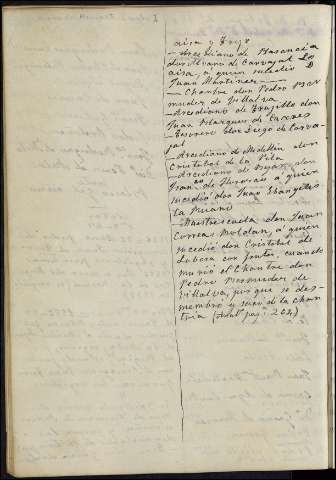 aisa y Trejo
- Arcediano de Plasencia
don Alvaro de Carvajal Lo
aisa, a quien sucedio D
Juan Martinez
- Chantre don Pedro Ber
mudez de Villalva
- Arcediano de Trujillo don
Juan Marquez de Caceres
- Tesorero don Diego de Carva-
jal
- Arcediano de Medellin don
Cristobal de la Vila
- Arcediano de Bejar don
Franco de, a quien
sucedió don Juan Evangelista
la Muano
- Maestrescuela don Juan
Correas Roldan, á quien
sucedió don Cristobal de
Lobera con, cuando
murió el Chantre don
Pedro Bermudez de
Villalva, porque se des-
membró y sacó de la chan
tria (pag. 264)